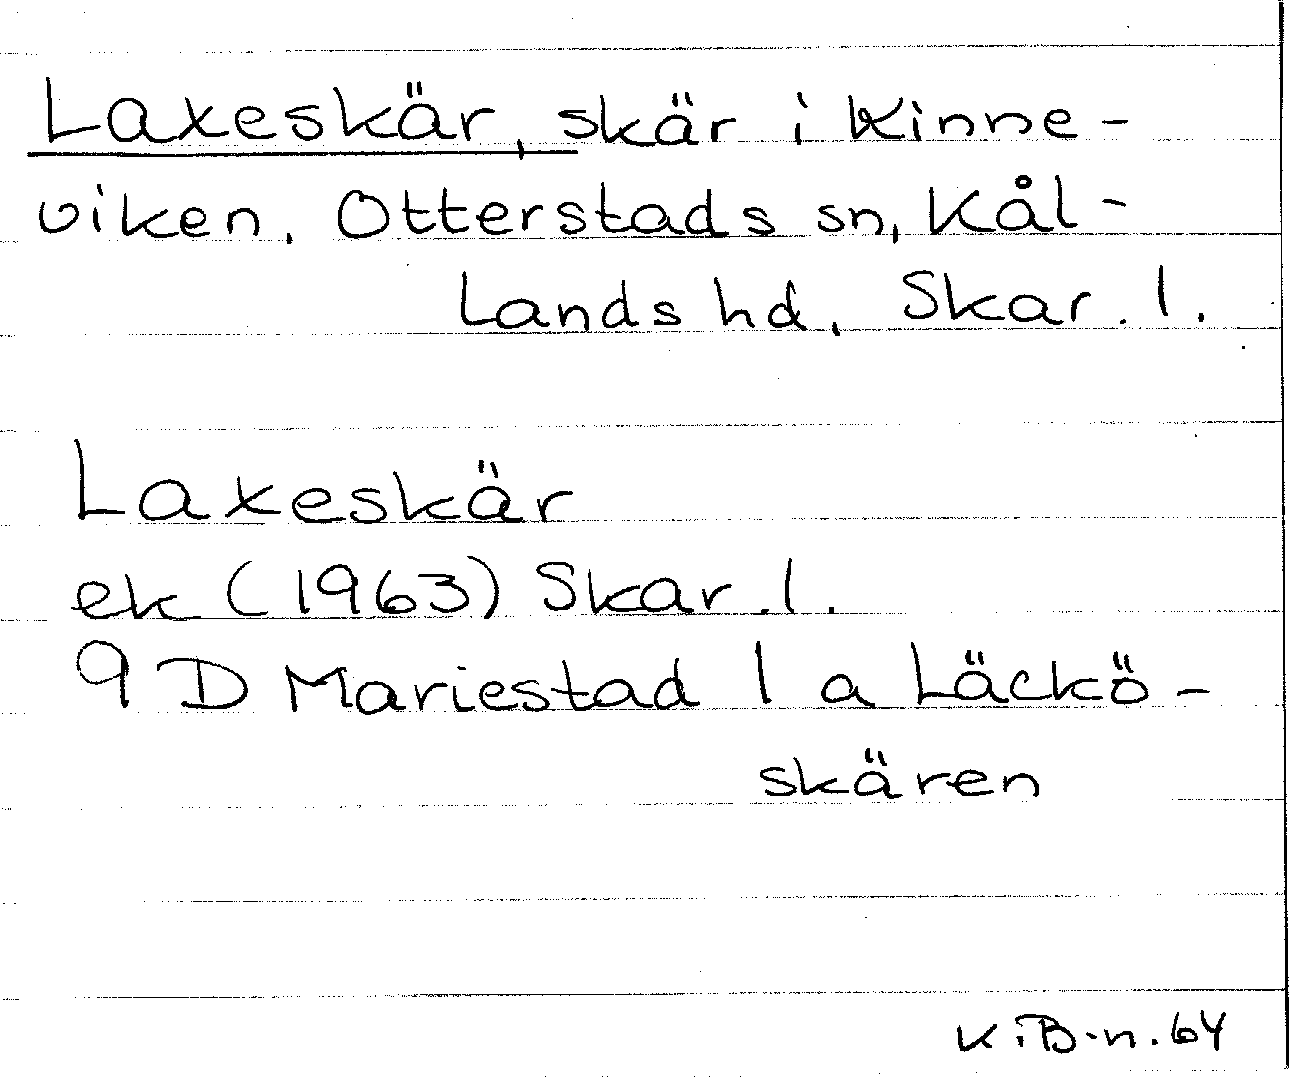 Laxeskär, skär i Kinne-
viken, Otterstads sn, Kål-
Lands hd, Skar. l.
Laxeskär
ek (1963) Skar. l.
9 D Mariestad 1 a Läckö-
skären
K.B-n. 64